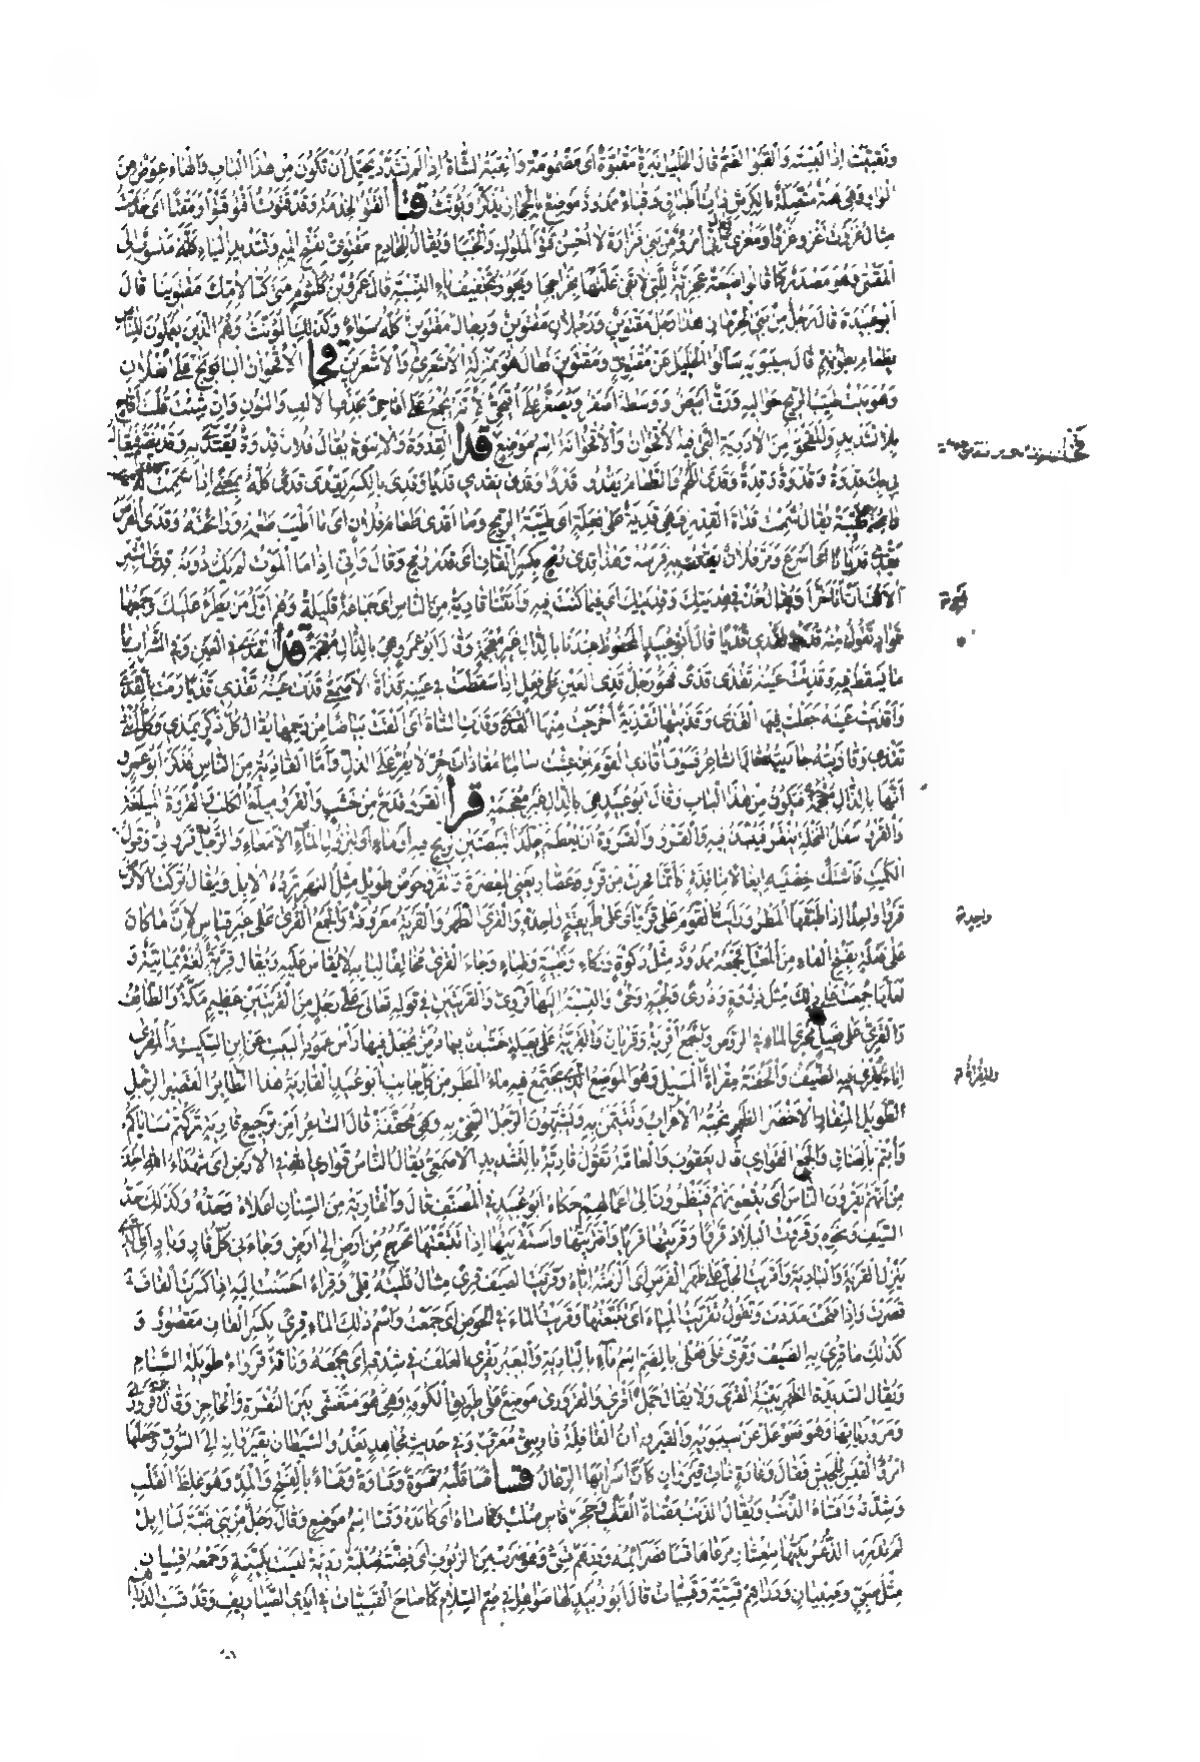 وتقبّيت إذا لبسته والقبو الضمّ قال الخليل نبرة مقبوّة أي مضمومة وانقبة الشاة إذا لم تشدّد يحتمل أن تكون من هذا الباب والهاء عوض من
الواو وهي هنة متصلة بالكرش ذات أطباق وقباء ممدود موضع بالحجاز يذكّر ويؤنّث قتا القتو الخدمة وقد قتوت أقتو قتوا ومقتى أي خدمت
مثال غزوت أغزو غزوا ومغزى إنّي امرؤ من بني فزارة لا أحسن قتو الملوك والخببا ويقال للخادم مقتويّ بفتح الميم وتشديد الياء كأنّه منسوب إلى
المقتى وهو مصدر كما قالوا ضيعة عجزيّة للتي لا تفي غلّتها بخراجها ويجوز تخفيف ياء النسبة قال عمرو بن كلثوم متى كنّا لأمّك مقتوينا قال
أبو عبيدة قال رجل من بني الحرماز هذا رجل مقتوين ورجلان مقتوين ورجال مقتوين كلّه سواء وكذلك المؤنّث وهم الذين يعملون للناس
بطعام بطونهم قال سيبويه سألوا الخليل عن مقتوي ومقتوين فقال هو بمنزلة الأشعري والأشعرين قحا الأقحوان البابونج على أفعلان
وهو نبت طيّب الريح حواليه ورق أبيض ووسطه أصفر ويصغّر على أقيحيّ لأنّه يجمع على أقاحيّ بحذف الألف والنون وإن شئت قلت أقاح
بلا تشديد والمقحوّ من الأدوية الذي فيه الأقحوان والأقحوانة اسم موضع قدا القدوة الأسوة يقال فلان قدوة يقتدى به وقد يضمّ فيقال
لي بك قدوة وقدوة وقدة وقدى اللحم والطعام يقدو قدوا وقدى يقدي قديا وقدي بالكسر يقدى قدى كلّه بمعنى إذا شممت له
رائحة طيّبة يقال شممت قداة القدر فهي قدية على فعلة أي طيّبة الريح وما أقدى طعام فلان أي ما أطيب طعمه ورائحته وقدى الفرس
يقدي قديانا أي أسرع ومرّ فلان يتقدّى به فرسه وهذا قدى رمح بكسر القاف أي قدر رمح وقال وإنّي إذا ما الموت لم يك دونه قدى الشبر
أحمي الأنف أن أتأخّرا ويقال خذ في هديتك وقديتك أي فيما كنت فيه وأتتنا قادية من الناس أي جماعة قليلة وهم أوّل من يطرأ عليك وجمعها
قواد تقول منه قدت تقدي قديا قال أبو عبيد المحفوظ عندنا بالدال غير معجمة وقال أبو عمرو هي بالذال معجمة قذا القذى في العين وفي الشراب ما
ما يسقط فيه وقذيت عينه تقذى قذى فهو رجل قذي العين على فعل إذا سقطت في عينه قذاة الأصمعي قذت عينه تقذي قذيا رمت بالقذى
وأقذيت عينه جعلت فيها القذى وقذيتها تقذية أخرجت منها القذى وقذت الشاة أي ألقت بياضا من رحمها يقال كلّ ذكر يمذي وكلّ أنثى
تقذي وقاذيته جازيته قال الشاعر فسوف أقاذي القوم إن عشت سالما مقاذاة حرّ لا يقرّ على الذلّ وأمّا القاذية من الناس فذكر أبو عمرو
أنّها بالذال معجمة فتكون من هذا الباب وقال أبو عبيد هي بالدال غير معجمة قرا القرو قدح من خشب والقرو ميلغ الكلب والقروة الميلغة
والقرو أسفل النخلة ينقر فينبذ فيه والقرو والقروة أن يعظم جلد البيضتين لريح فيه أو ماء أو لنزول الأمعاء والرجل قرواني وقول
الكميت فاشتكّ خصييه إيغالا بنافذة كأنّما فجرت من قرو عصّار يعني المعصرة والقرو حوض طويل مثل النهر ترده الإبل ويقال تركت الأرض
قروا واحدا إذا طبّقها المطر ورأيت القوم على قرو واحد أي على طريقة واحدة والقرا الظهر والقرية معروفة والجمع القرى على غير قياس لأنّ ما كان
على فعلة بفتح الفاء من المعتلّ فجمعه ممدود مثل ركوة وركاء وظبية وظباء وجاء القرى مخالفا لبابه لا يقاس عليه ويقال قرية لغة يمانية و
لعلّها جمعت على ذلك مثل ذروة وذرى ولحية ولحى والنسبة إليها قرويّ والقريتين في قوله تعالى على رجل من القريتين عظيم مكّة والطائف
والقريّ على فعيل مجرى الماء في الروض والجمع أقرية وقريان والقريّة على فعيلة خشبات فيها فرض يجعل فيها رأس عمود البيت عن ابن السكّيت والمقرى
إناء يقرى فيه الضيف والجفنة مقراة والمقراة المسيل وهو الموضع الذي يجتمع فيه ماء المطر من كلّ جانب أبو عبيد القارية هذا الطائر القصير الرجل
الطويل المنقار الأخضر الظهر تحبّه الأعراب وتتيمّن به ويشبّهون الرجل السخيّ به وهي مخفّفة قال الشاعر أمن ترجيع قارية تركتم سباياكم
وأبتم بالعناق والجمع القواري قال يعقوب والعامّة تقول قاريّة بالتشديد الأصمعي يقال الناس قواري الله في الأرض أي شهداء الله أخذ
من أنّهم يقرون الناس أي يتبعونهم فينظرون إلى أعمالهم حكاه أبو عبيد في المصنّف قال والقارية من السنان أعلاه وحدّه وكذلك حدّ
السيف ونحوه وقروت البلاد قروا وقريتها قريا واقتريتها واستقريتها إذا تتبّعتها تخرج من أرض إلى أرض وجاءني كلّ قار وباد أي الذي
ينزل القرية والبادية وأقريت الجلّ على ظهر الفرس أي ألزمته إيّاه وقريت الضيف قرى مثال قليته قلى وقراء أحسنت إليه إذا كسرت القاف
قصرت وإذا فتحت مددت وتقول تقرّيت المياه أي تتبّعتها وقريت الماء في الحوض أي جمعت واسم ذلك الماء قرى بكسر القاف مقصور و
كذلك ما قري به الضيف وقرّى على فعلى بالضم اسم ماء بالبادية والبعير يقري العلف في شدقه أي يجمعه وناقة قرواء طويلة السنام
ويقال الشديدة الظهر بيّنة القرى ولا يقال جمل أقرى والقرورى موضع على طريق الكوفة وهي متعشّى بين النقرة والحاجر وقال
ومرورياتها وهو فعوعل عن سيبويه والقيروان القافلة فارسي معرّب وفي حديث مجاهد يغدو الشيطان بقيروانه إلى السوق وجعلها
امرؤ القيس للجيش فقال وغارة ذات قيروان كأنّ أسرابها الرعال قسا قسا قلبه قسوة وقساوة وقساء بالفتح والمد وهو غلظ القلب
وشدّته وأقساه الذنب ويقال الذنب مقساة القلب وحجر قاس صلب وقاساه أي كابده وقسا اسم موضع وقال رجل من بني ضبّة لنا إبل
لم تدر ما الذعر بيتها بتعشار مرعاها قسا فصرائمه ودرهم قسيّ وهو ضرب من الزيوف أي فضّته صلبة رديّة ليست بليّنة وجمعه قسيان
مثل صبيّ وصبيان ودراهم قسيّة وقسيّات قال أبو زبيد لها صواهل في صمّ السلام كما صاح القسيّات في أيدي الصياريف وقد قست الدراهم
واحدة
والمقراة